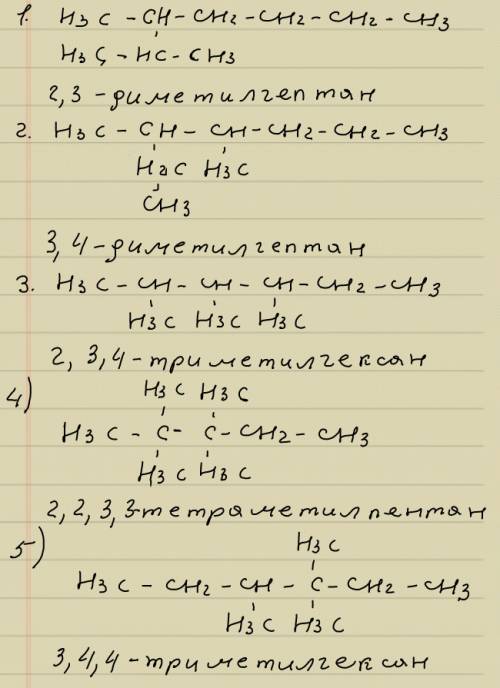 1. H3C - CH - CH2 - CH2 - CH2 - CH3
H3C - HC - CH3
2,3 - диметилгептан
2. H3C - CH - CH - CH2 - CH2 - CH3
H2C H3C
CH3
3,4 - диметилгептан
3. H3C - CH - CH - CH - CH2 - CH3
H3C H3C H3C
2, 3,4 - триметилгексан
H3C H3C
4)
H3C - C - C - CH2 - CH3
H3C H3C
2,2,3,3-тетраметилпентан
5)
H3C
H3C - CH2 - CH - C - CH2 - CH3
H3C H3C
3,4,4 - триметилгексан